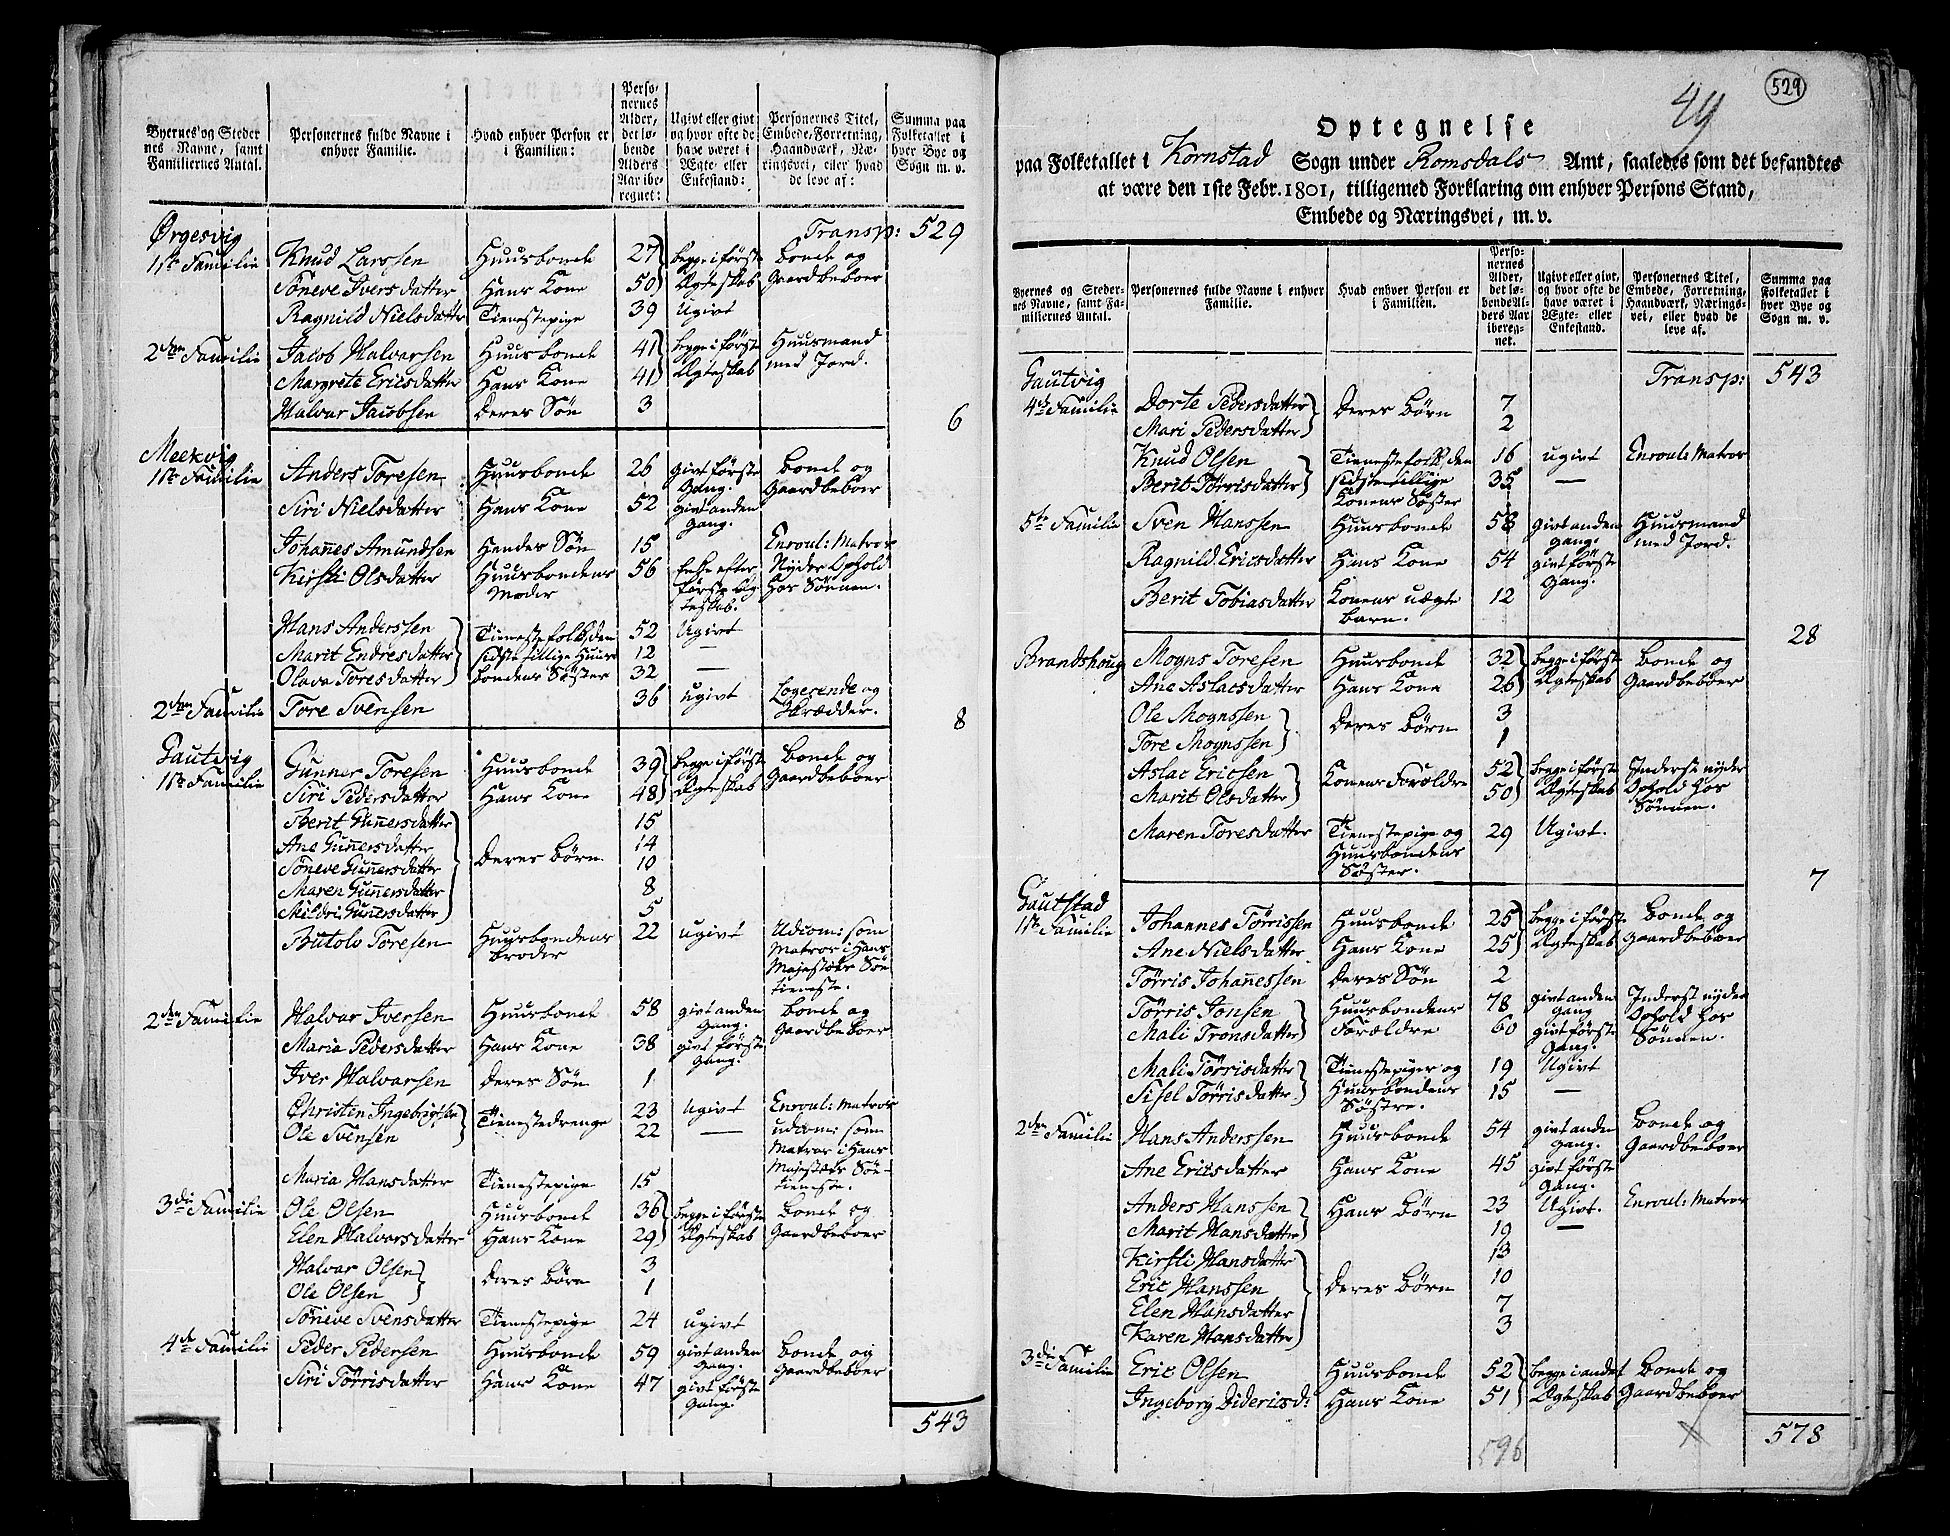 Byernes og Steder nes Navne, samt Familiernes Antal.
Personernes fulde Navne i enhver Familie.
Hvad enhver Person er i Familien:
Perso- nernes Alder, det lø- bende Alders Aar ibe- regnet:
Ugivt eller givt og hvor ofte de have været i Ægte- eller Enkestand:
Personernes Titel, Embede, Forretning, Haandværk, Næ- ringsvei, eller hvad de leve af:
Summa paa Folketallet i hver Bye og Sogn m. v.
Transp: 529
Ørgesvig
1ste Familie Knud Larssen Huusbonde 27 begge i første bonde og
Søneve Iversdatter Hans Kone 50 Ægteskab Gaardbeboer
Ragnild Nielsdatter Tienestepige 39 Ugivt
2den Familie Jacob Halvarsen Huusbonde 41 begge i første Huusmand
Margrete Ericsdatter Hans Kone 41 Ægteskab med Jord.
Halvar Jacobsen Deres Søn 3
6
Meekvig
1ste Familie Anders Toresen Huusbonde 26 givt første Gang. bonde og Gaardbeboer
Siri Nielsdatter Hans Kone 52 givt anden Gang.
Johannes Amundsen Hendes Søn 15 Enroul: Matros
Kirsti Olsdatter Huusbondens Moder 56 Enke efter første Æg- teskab. Nyder Ophold hos Sønnen.
Hans Anderssen Tienestefolk, den 52 Ugivt
Marit Endresdatter sidste tillige Huus- 12 —
Olava Toresdatter bondens Søster 32 —
2den Familie Tore Svensen 36 ugivt Logerende og Skrædder.
8
Gautvig
1ste Familie Gunner Toresen Huusbonde 39 begge i første bonde og
Siri Pedersdatter Hans Kone 48 Ægteskab Gaardbeboer
Berit Gunnersdatter 15
Ane Gunnersdatter 14
Søneve Gunnersdatter Deres Børn 10
Maren Gunnersdatter 8
Mildri Gunersdatter 5
Butolv Toresen Huusbondens broder 22 ugivt Udcom: som Matros i Hans Majestæts Søe tieneste.
2den Familie Halvar Iversen Huusbonde 58 givt anden Gang. bonde og Gaardbeboer
Maria Pedersdatter Hans Kone 38 givt første Gang.
Iver Halvarsen Deres Søn 1
Christen Ingebrigtsen Tienestedrenge 23 Ugivt Enroul: Matros
Ole Svensen 22 — udcom: som Matros i Hans Majestæts Søe- tieneste.
Maria Hansdatter Tienestepige 15
3die Familie Ole Olsen Huusbonde 36 begge i første bonde og
Elen Halvarsdatter Hans Kone 29 Ægteskab Gaardbeboer
Halvar Olsen Deres Børn 3
Ole Olsen 1
Søneve Svensdatter Tienestepige 24 ugivt
4de Familie Peder Pedersen Huusbonde 59 givt anden Gang. bonde og Gaardbeboer
Siri Törrisdatter Hans Kone 47 givt første Gang.
543
529
49
Optegnelse
paa Folketallet i Kornstad Sogn under Romsdals Amt, saaledes som det befandtes
at være den 1ste Febr. 1801, tilligemed Forklaring om enhver Persons Stand,
Embede og Næringsvei, m. v.
Byernes og Steder- nes Navne, samt Fa- miliernes Antal.
Personernes fulde Navne i enhver Familie.
Hvad enhver Person er i Familien.
Perso- nernes Alder, det lø- bende Al- ders Aar iberegn- net.
Ugivt eller givt, og hvor ofte de have været i Ægte- eller Enkestand.
Personernes Titel, Embede, Forretning, Haandværk, Nærings- vei, eller hvad de leve af.
Summa paa Folketallet i hver Bye og Sogn m. v.
Gautvig Transp: 543
4de Familie Dorte Pedersdatter Deres Børn 7
Mari Pedersdatter 2
Knud Olsen Tienestefolk, den 16 ugivt Enroul: Matros
Berit Törrisdatter sidste tillige Konens Søster 35 —
5te Familie Sven Hanssen Huusbonde 58 givt anden gang. Huusmand med Jord.
Ragnild Ericsdatter Hans Kone 54 givt første Gang.
Berit Tobiasdatter Konens uægte barn. 12
28
Brandshoug Mogns Toresen Huusbonde 32 begge i først bonde og
Ane Aslacsdatter Hans Kone 26 Ægteskab Gaardbeboer
Ole Mognssen Deres Børn 3
Tore Mognssen 1
Aslac Ericsen Konens Forældre 52 begge i første Inderst nyder
Marit Olsdatter 50 Ægteskab Ophold hos Sönnen.
Maren Toresdatter Tienestepige og Huusbondens Søster. 29 Ugivt.
7
Gautstad
1ste Familie Johannes Törrissen Huusbonde 25 begge i første bonde og
Ane Nielsdatter Hans Kone 25 Ægteskab Gaardbeboer
Törris Johannessen Deres Søn 2
Törris Jonsen Huusbondens 78 givt anden Gang Inderst nyder
Mali Tronsdatter Forældre 60 givt første Gang. Ophold hos Sönnen.
Mali Törrisdatter Tienestepiger og 19 Ugivt
Sisel Törrisdatter Huusbondens Søstre. 15 —
2den Familie Hans Anderssen Huusbonde 54 givt anden Gang. bonde og Gaardbeboer
Ane Ericsdatter Hans Kone 45 givt første Gang.
Anders Hanssen Hans Børn 23 Ugivt. Enroul: Matros
Marit Hansdatter 19 —
Kirsti Hansdatter 13
Eric Hanssen Deres Børn 10
Elen Hansdatter 7
Karen Hansdatter 3
3die Familie Eric Olsen Huusbonde 52 begge i andet bonde og
Ingeborg Didericsd: Hans Kone 51 Ægteskab Gaardbeboer
596
578